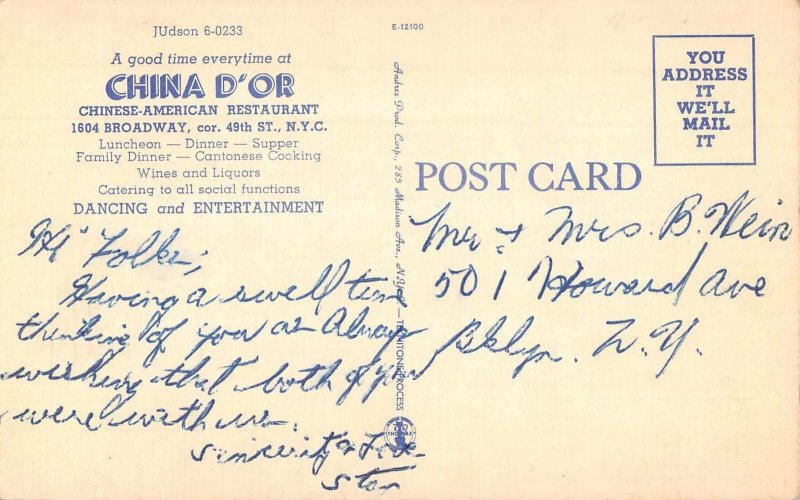 JUdson 6-0233
A good time everytime at
CHINA D'OR
CHINESE-AMERICAN RESTAURANT
1604 BROADWAY, cor. 49th ST., N.Y.C.
Luncheon — Dinner — Supper
Family Dinner — Cantonese Cooking
Wines and Liquors
Catering to all social functions
DANCING and ENTERTAINMENT
Hi Folks,
Having a swell time
thinking of you as Always
wishing that both of you
were with us.
Sincerity & Love
E-12100
Andres Prod. Corp., 285 Madison Ave., N.Y. — TICHNITONE PROCESS
YOU
ADDRESS
IT
WE'LL
MAIL
IT
POST CARD
Mr & Mrs. B. Wein
501 Howard Ave
Bklyn. N.Y.